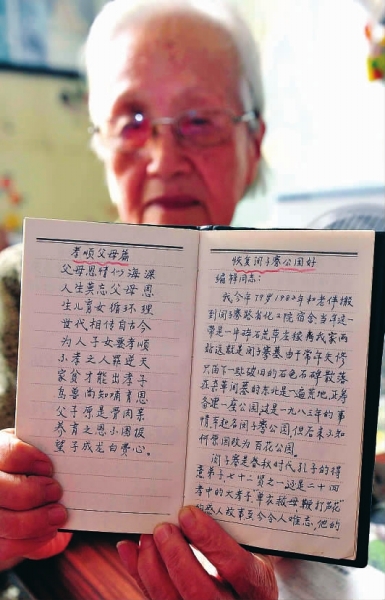 孝顺父母篇
父母恩情似海深
人生莫忘父母恩
生儿育女循环理
世代相传自古今
为人子女要孝顺
不孝之人罪逆天
家贫才能出孝子
鸟兽尚知哺育恩
父子原是骨肉亲
养育之恩不图报
望子成龙白费心。
恢复闵子骞公园好
编辑同志:
我今年79岁1982年和老伴搬
到闵子骞路省化工院宿舍当年这一
带是一片碎石荒草左接离我家两
站远就是闵子骞墓由于常年失修
只留下一些破旧的石龟石碑散落
在古墓闵墓的东北是一遍荒地正筹
备建一座公园这是一九八三年的事
情原起名闵子骞公园但后来不知
何原因改为百花公园。
闵子骞是春秋时代孔子的得
意弟子,七十二贤之一这是二十四
孝中的大孝子"单衣救母鞭打芦花"
的感人故事至今令人难忘,他的